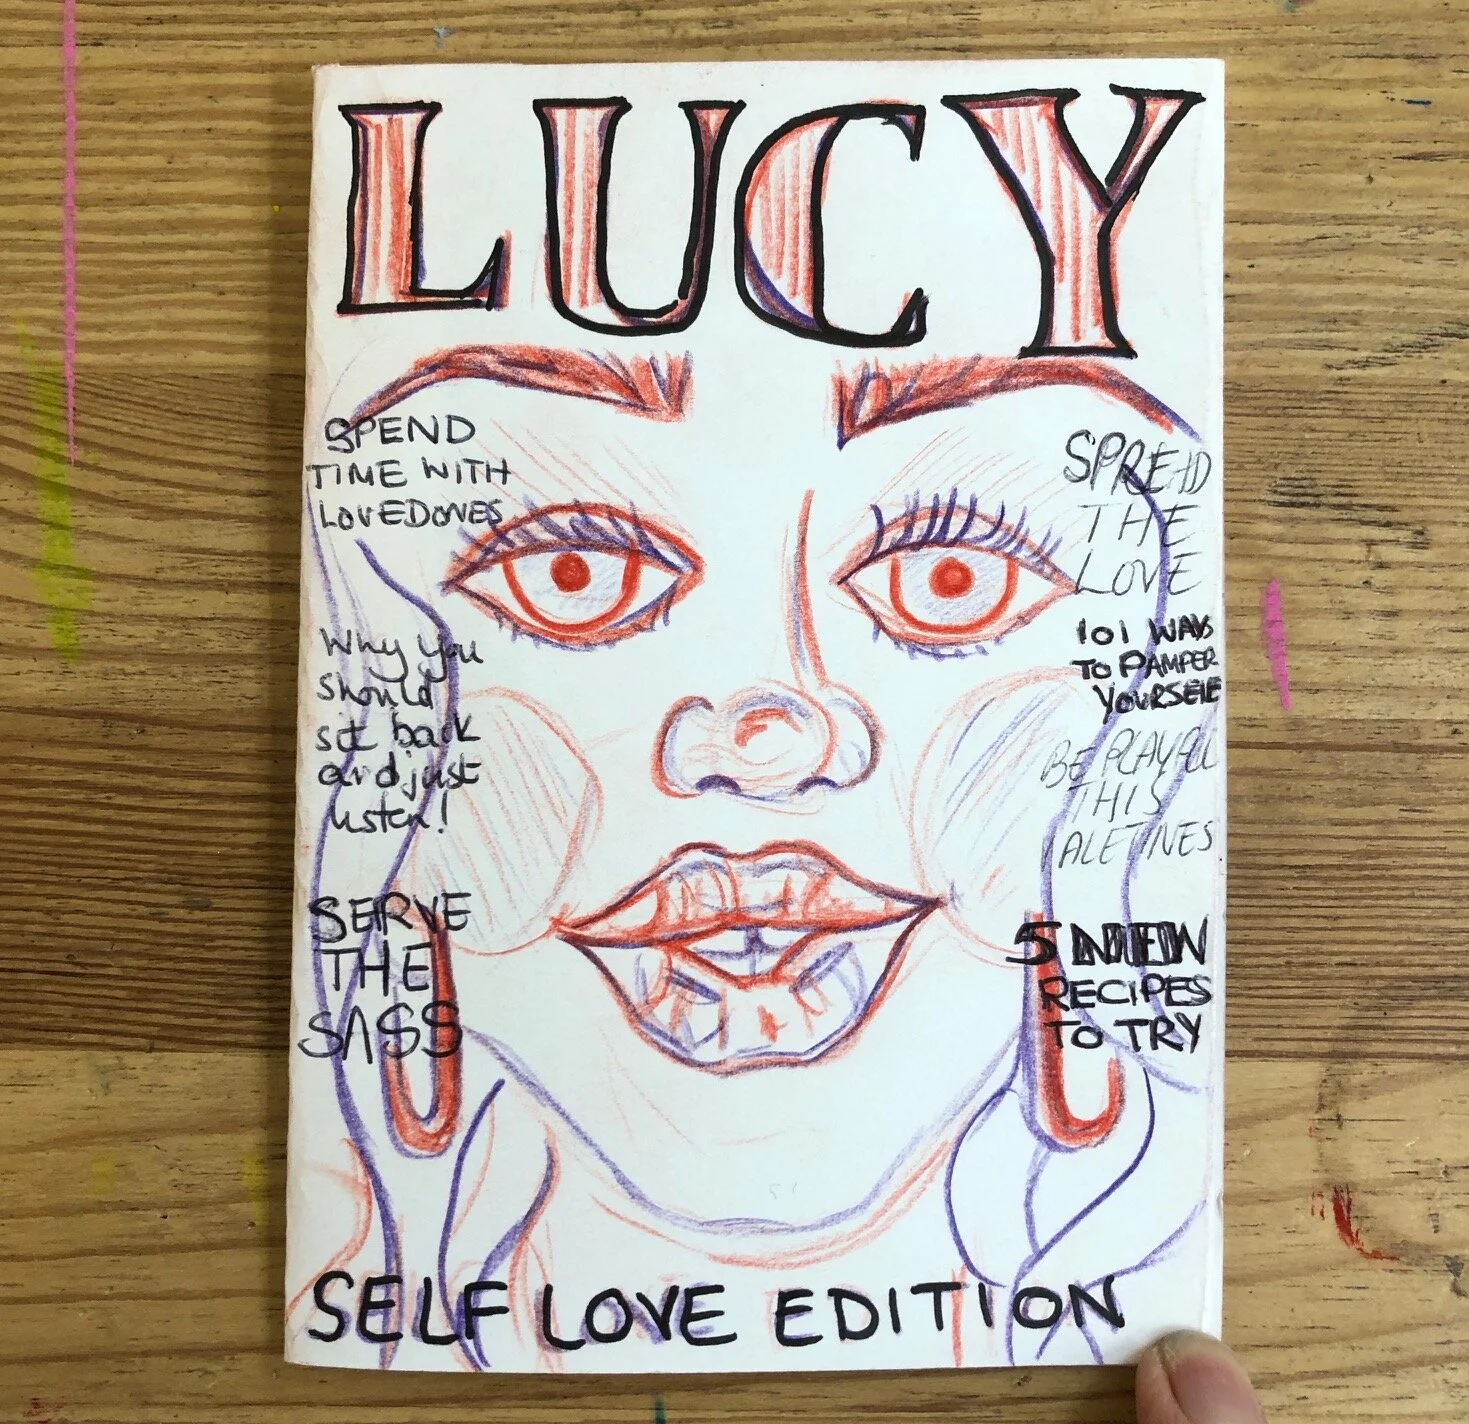 LUCY
SPEND
TIME WITH
LOVEDONES
Why you
should
sit back
and just
listen!
SERVE
THE
SASS
SPREAD
THE
LOVE
101 WAYS
TO PAMPER
YOURSELF
BE PLAYFUL
THIS
ALETINES
5 NEW
RECIPES
TO TRY
SELF LOVE EDITION